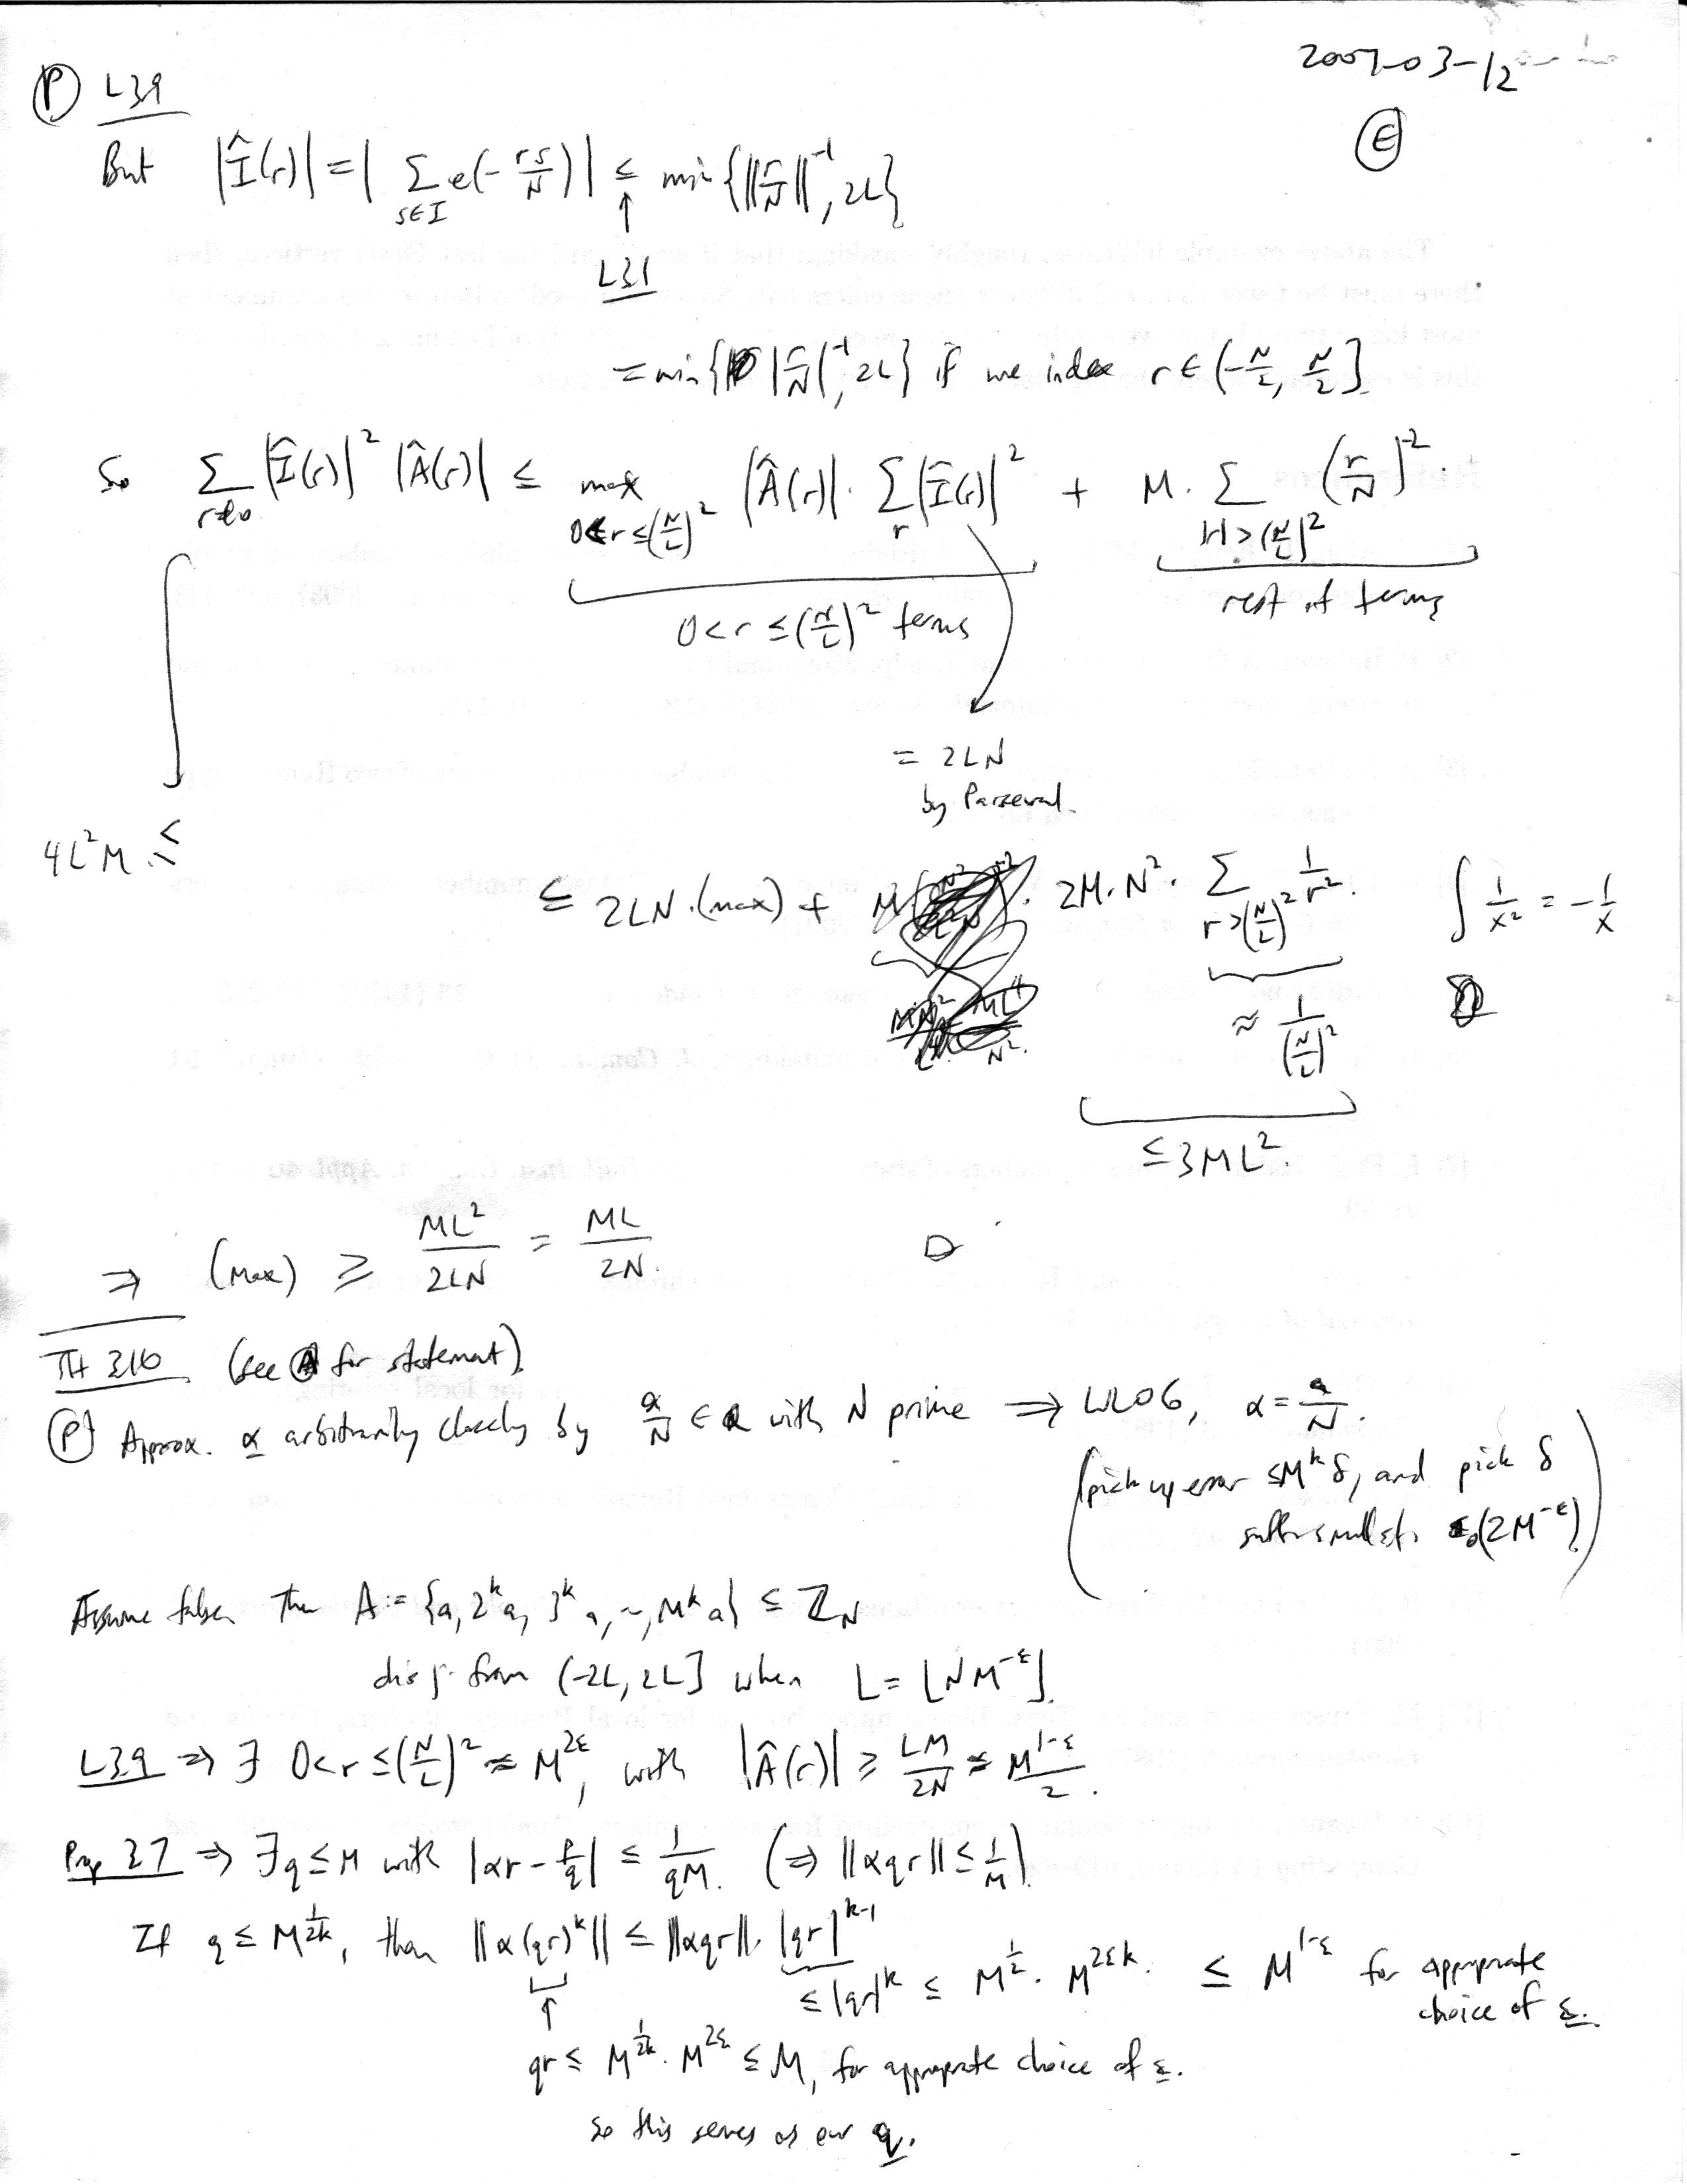 2007-03-12
Ⓔ
Ⓟ L39
But |Î(r)| = | Σ_{s∈I} e(-rs/N) | ≤ min{‖r/N‖^{-1}, 2L}
↑
L31
= min{ |r/N|^{-1}, 2L} if we index r ∈ (-N/2, N/2]
So Σ_{r≠0} |Î(r)|² |Â(r)| ≤ max_{0<r≤(N/L)²} |Â(r)| · Σ_r |Î(r)|² + M · Σ_{|r|>(N/L)²} (r/N)^{-2}.
0<r≤(N/L)² terms
rest of terms
= 2LN
by Parseval.
4L²M ≤
≤ 2LN·(max) + 2M·N²· Σ_{r>(N/L)²} 1/r². ∫ 1/x² = -1/x
≈ 1/(N/L)²
≤ 3ML².
⇒ (max) ≥ ML²/2LN = ML/2N. □
TH 310 (see Ⓐ for statement).
Ⓟ Approx. α arbitrarily closely by a/N ∈ Q with N prime ⇒ WLOG, α = a/N.
(pick up error ≤M^k δ, and pick δ
suff. small st. ≤(2M^{-ε}))
Assume false. Then A := {a, 2^k a, 3^k a, ~, M^k a} ≤ ℤ_N
disj. from (-2L, 2L] when L = ⌊NM^{-ε}⌋.
L39 ⇒ ∃ 0<r≤(N/L)² ≈ M^{2ε}, with |Â(r)| ≥ LM/2N ≈ M^{1-ε}/2.
Prop 37 ⇒ ∃q≤M with |αr - p/q| ≤ 1/qM. (⇒ ‖αqr‖ ≤ 1/M).
If q ≤ M^{1/2k}, then ‖α(qr)^k‖ ≤ ‖αqr‖·|qr|^{k-1}
≤ |qr|^k ≤ M^{1/2}·M^{2εk}. ≤ M^{1-ε} for appropriate
choice of ε.
↑
qr ≤ M^{1/2k}·M^{2ε} ≤ M, for appropriate choice of ε.
So this serves as our q.